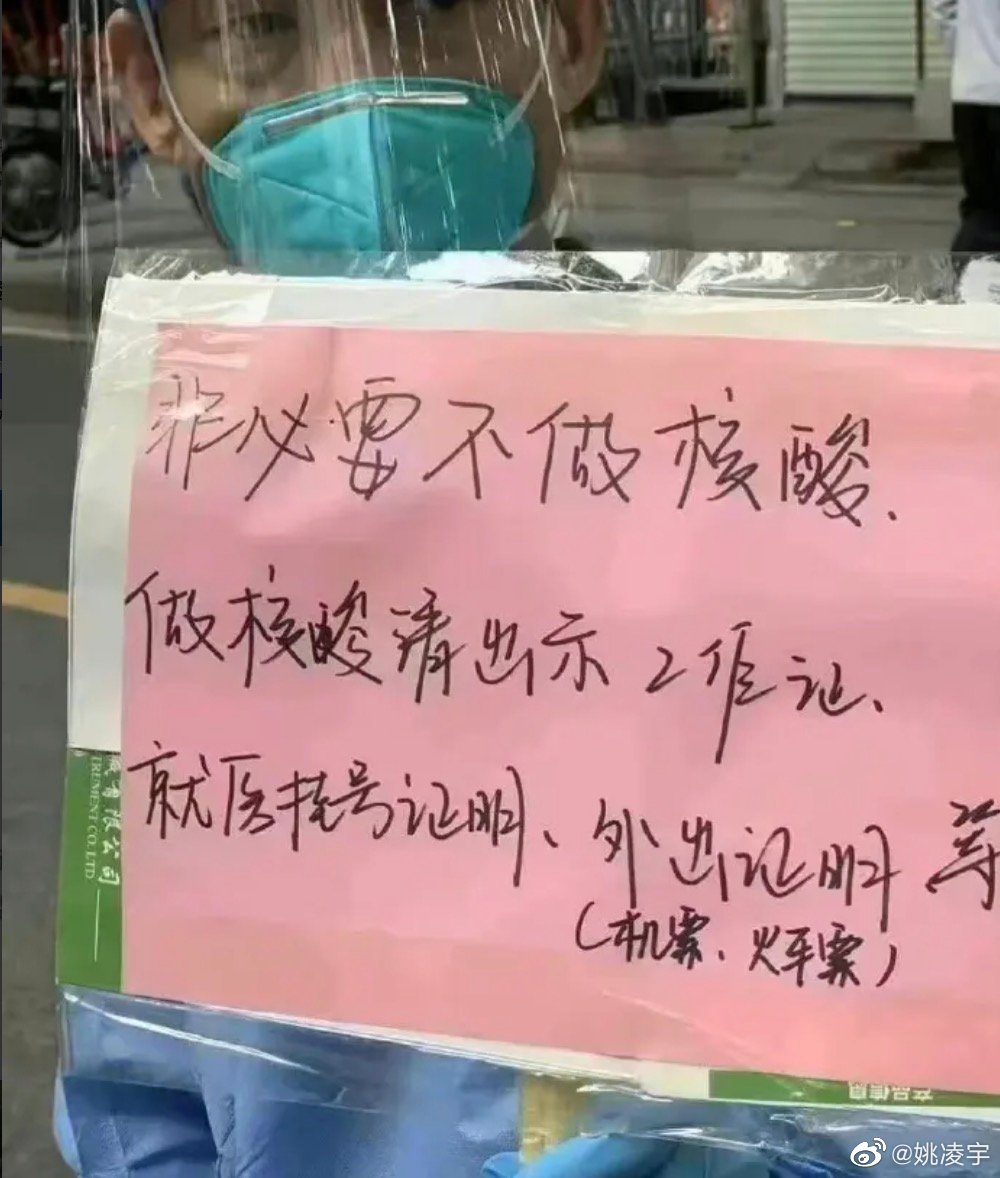 非必要不做核酸.
做核酸请出示工作证、
就医挂号证明、外出证明等
(机票、火车票)
限公司
TRUMENT CO.,LTD.
产品信息
@姚凌宇